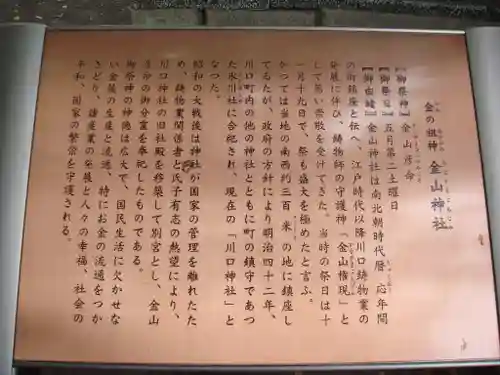 金の祖神 金山神社
【御祭神】金山彦命
【御祭日】五月第二土曜日
【御由緒】金山神社は南北朝時代暦応年間
の御鎮座と伝へ、江戸時代以降川口鋳物業の
発展に伴ひ、鋳物師の守護神「金山権現」と
して篤い崇敬を受けてきた。当時の祭日は十
一月十九日で、祭も盛大を極めたと言ふ。
かつては当地の南西約三百米の地に鎮座し
てゐたが、政府の方針により明治四十二年、
川口町内の他の神社とともに町の鎮守であつ
た氷川社に合祀され、現在の「川口神社」と
なつた。
昭和の大戦後は神社が国家の管理を離れたた
め、鋳物業関係者と氏子有志の熱望により、
川口神社の旧社殿を移築して別宮とし、金山
彦命の御分霊を奉祀したものである。
御祭神の神徳は広大で、国民生活に欠かせな
い金属の生産と流通、特にお金の流通をつか
さどり、諸産業の発展と人々の幸福、社会の
平和、国家の繁栄を守護される。